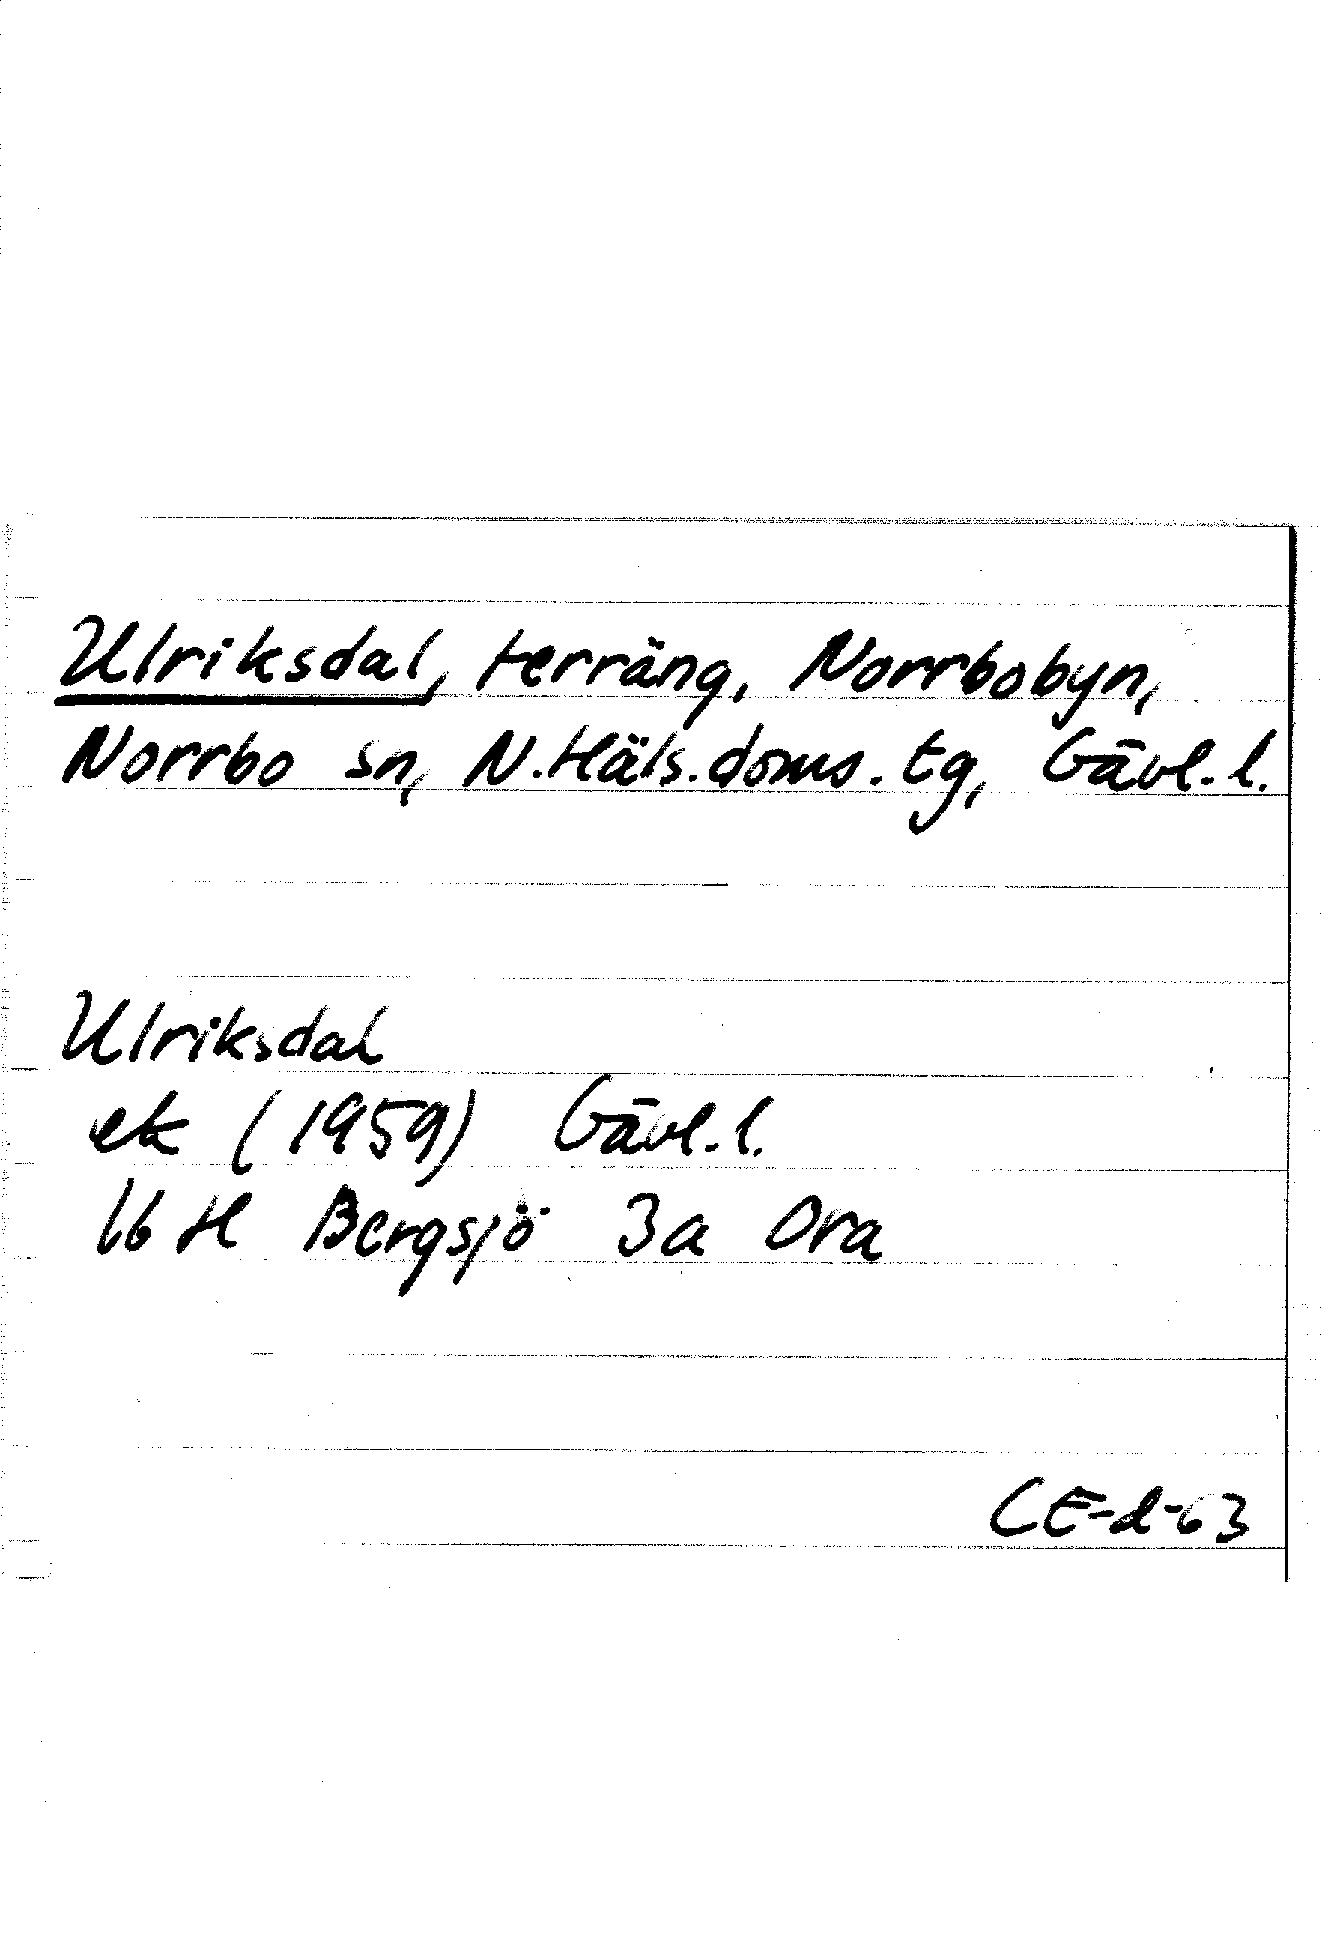 Ulriksdal, terräng, Norrbobyn,
Norrbo sn, N.Häls.doms.tg, Gävl.l.
Ulriksdal
ek (1959) Gävl.l.
16 H Bergsjö 3a Ora
CE-d-63